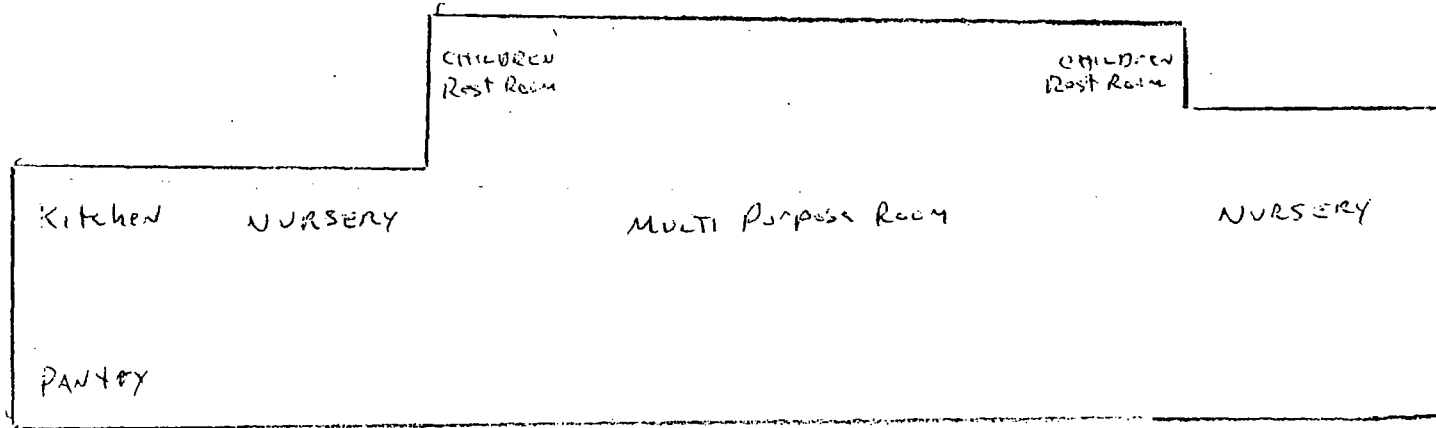 CHILDREN
Rest Room
CHILDREN
Rest Room
Kitchen
NURSERY
MULTI Purpose Room
NURSERY
PANTRY